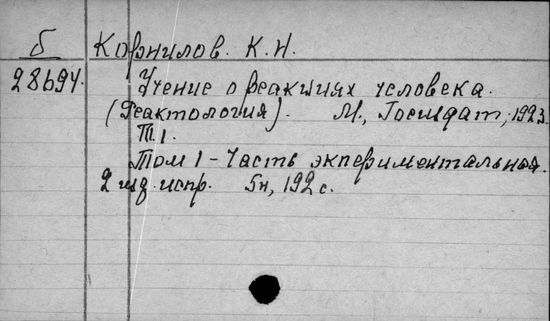 Б Корнилов. К.Н.
28694. Учение о реакциях человека.
(Реактология). М., Госиздат, 1923.
Т1.
Том 1 - Часть экпериментальная.
2 изд. испр. 192 с.